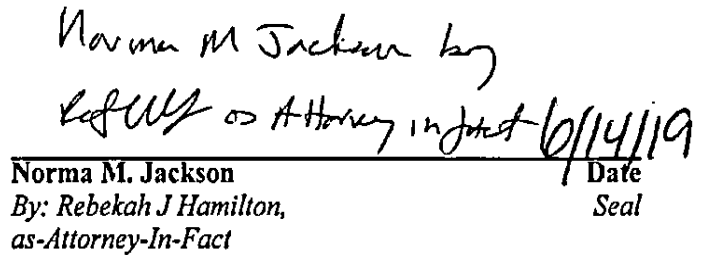 Norma M Jackson by
as Attorney in fact 6/14/19
Norma M. Jackson Date
By: Rebekah J Hamilton, Seal
as-Attorney-In-Fact